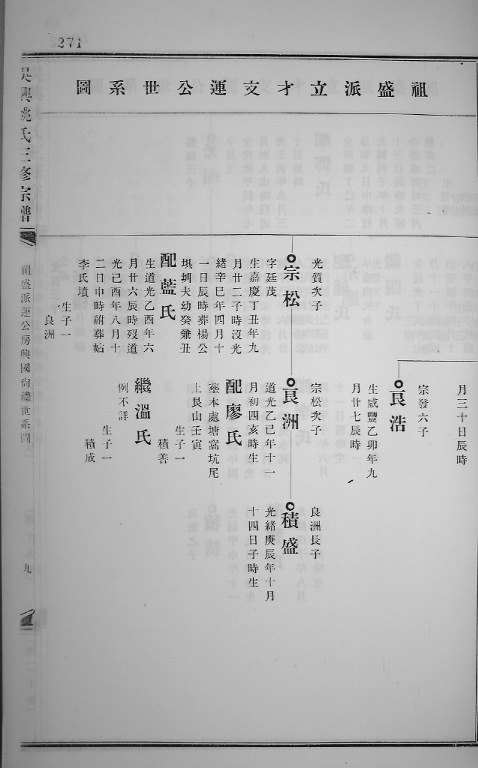 271
祖盛派立才支運公世系圖
月三十日辰時
宗發六子
良浩
生咸豐乙卯年九
月廿七辰時
光質次子
宗松
字廷茂
生嘉慶丁丑年九
月廿二子時沒光
緒辛巳年四月十
一日辰時葬楊公
垻圳夫幼癸兼丑
配藍氏
生道光乙酉年六
月廿六辰時歿道
光己酉年八月十
二日申時祔葬始
李氏墳
生子一
良洲
宗松次子
良洲
道光乙巳年十一
月初四亥時生
配廖氏
墓本處塘窩坑尾
上艮山壬寅
生子一
積善
繼溫氏
例不詳
生子一
積成
良洲長子
積盛
光緒庚辰年十月
十四日子時生
吳興姚氏三修宗譜
祖盛派運公房興國
世系圖
九